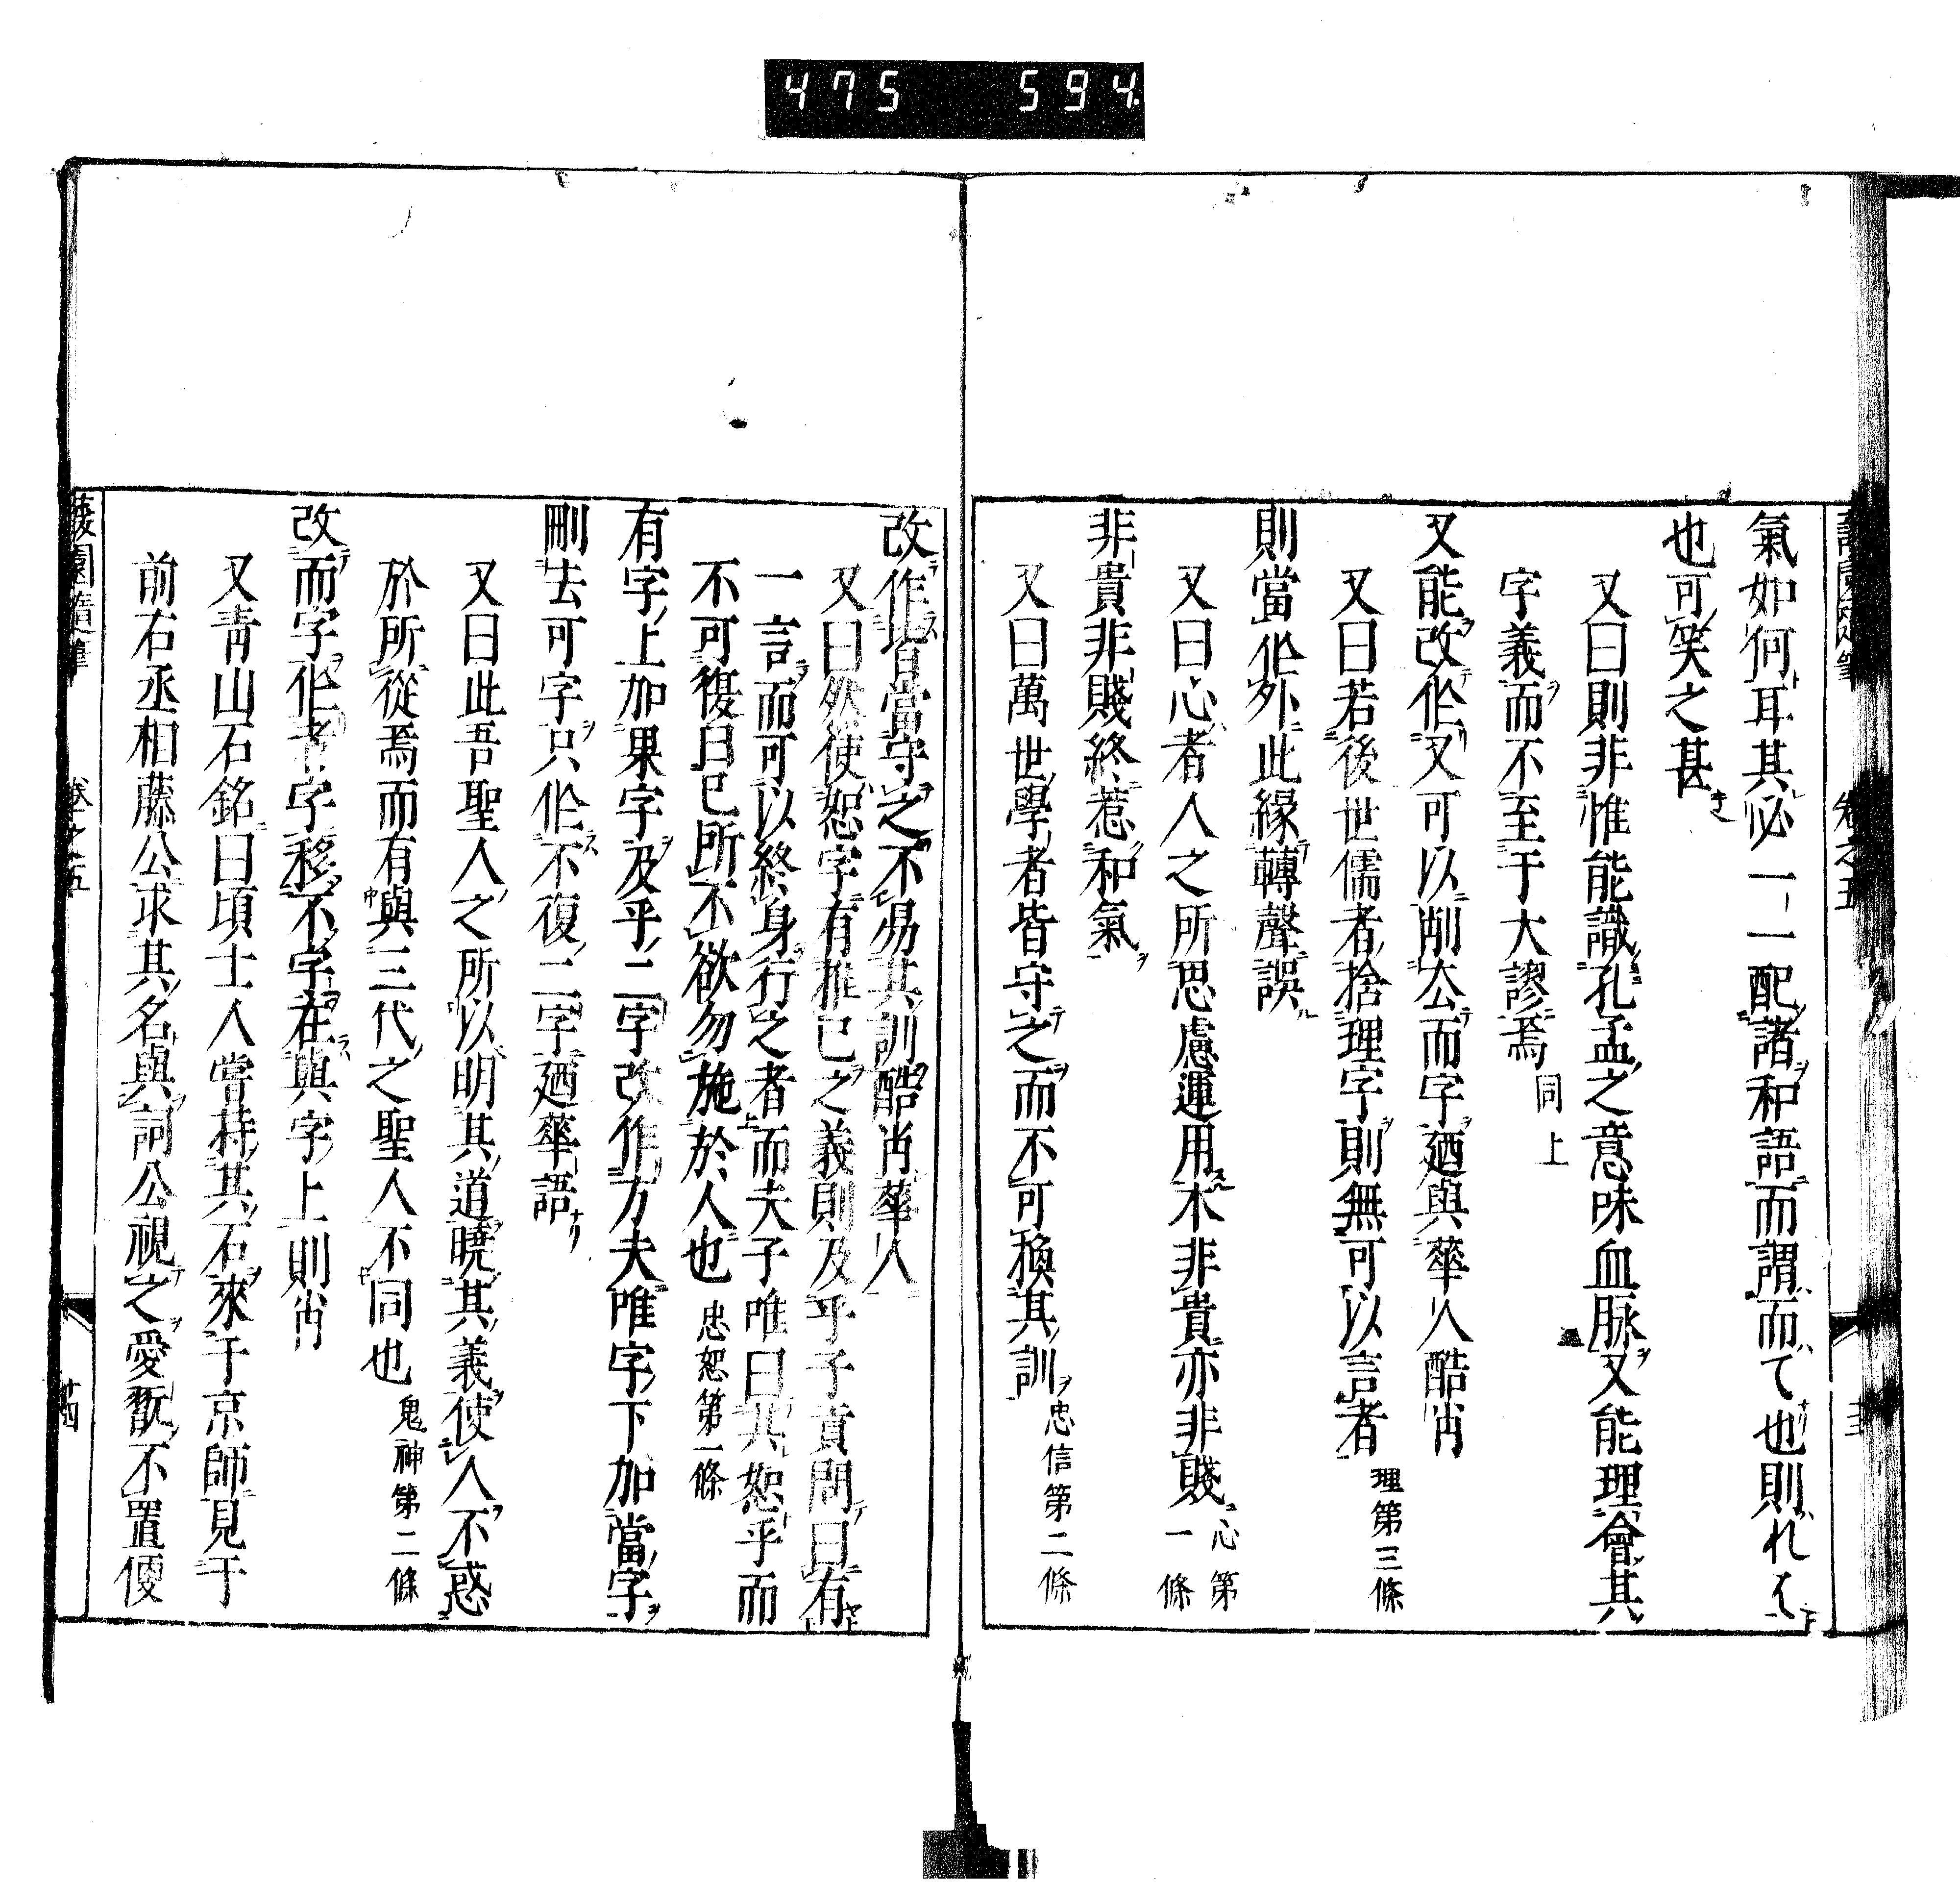 475 594
氣如何耳其必一一配諸和語而謂而て也則れは
也可笑之甚
又曰則非惟能識孔孟之意味血脉又能理會其
字義而不至于大謬焉 同上
又能改作又可以削公而字廼與華人酷肖
又曰若後世儒者捨理字則無可以言者 理第三條
則當作外此緣轉聲誤
又曰心者人之所思慮運用木非貴亦非賤 心第一條
非貴非賤終惹和氣
又曰萬世學者皆守之而不可換其訓 忠信第二條
改作皆當守之不易其訓酷肖華人
又曰然使恕字有推己之義則及乎子貢問曰有
一言而可以終身行之者而夫子唯曰其恕乎而
不可復曰己所不欲勿施於人也 忠恕第一條
有字上加果字及乎二字改作方夫唯字下加當字
刪去可字只作不復二字廼華語
又曰此吾聖人之所以明其道曉其義使人不惑
於所從焉而有與三代之聖人不同也 鬼神第二條
改而字作者字移不字在與字上則肖
又青山石銘曰頃士人嘗持其石來于京師見于
前右丞相藤公求其名與詞公視之愛翫不置便
蘐園隨筆 卷之五 廿四